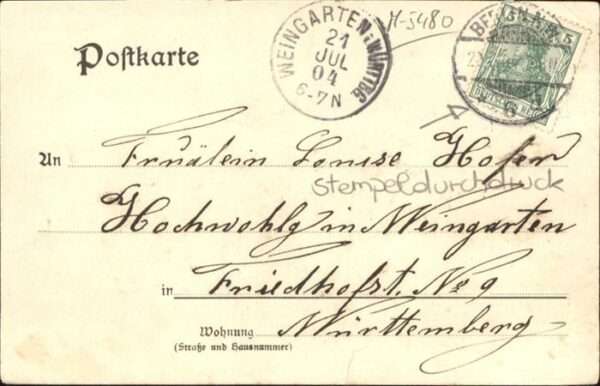 M-5480
WEINGARTEN WÜRTTBG
21
JUL
04
6-7N
BERLIN
5 5
Postkarte
An Fräulein Louise Hofer
Stempeldurchdruck
Hochwohlg in Weingarten
in Friedhofst. No 9
Wohnung Württemberg
(Straße und Hausnummer)